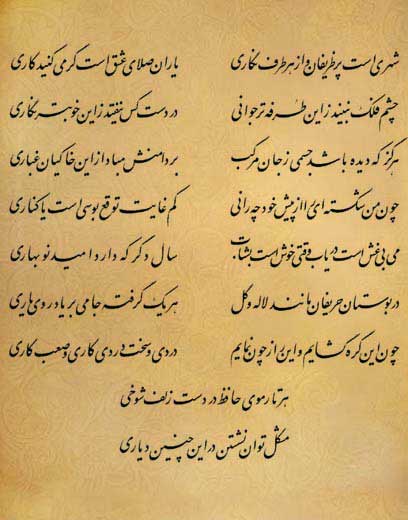 شهری است پر ظریفان و از هر طرف نگاری یاران صلای عشق است گر می کنید کاری
چشم فلک نبیند زاین طرفه تر جوانی در دست کس نیفتد زاین خوبتر نگاری
هرگز که دیده باشد جسمی ز جان مرکب بر دامنش مبادا زاین خاکیان غباری
چون من شکسته ای را از پیش خود چه رانی کم غایت توقع بوسی است یا کناری
می بی غش است دریاب وقتی خوش است بشتاب سال دگر که دارد امید نوبهاری
در بوستان حریفان مانند لاله و گل هر یک گرفته جامی بر یاد روی یاری
چون این گره گشایم و این راز چون نمایم دردی و سخت دردی کاری و صعب کاری
هر تار موی حافظ در دست زلف شوخی
مشکل توان نشستن در این چنین دیاری